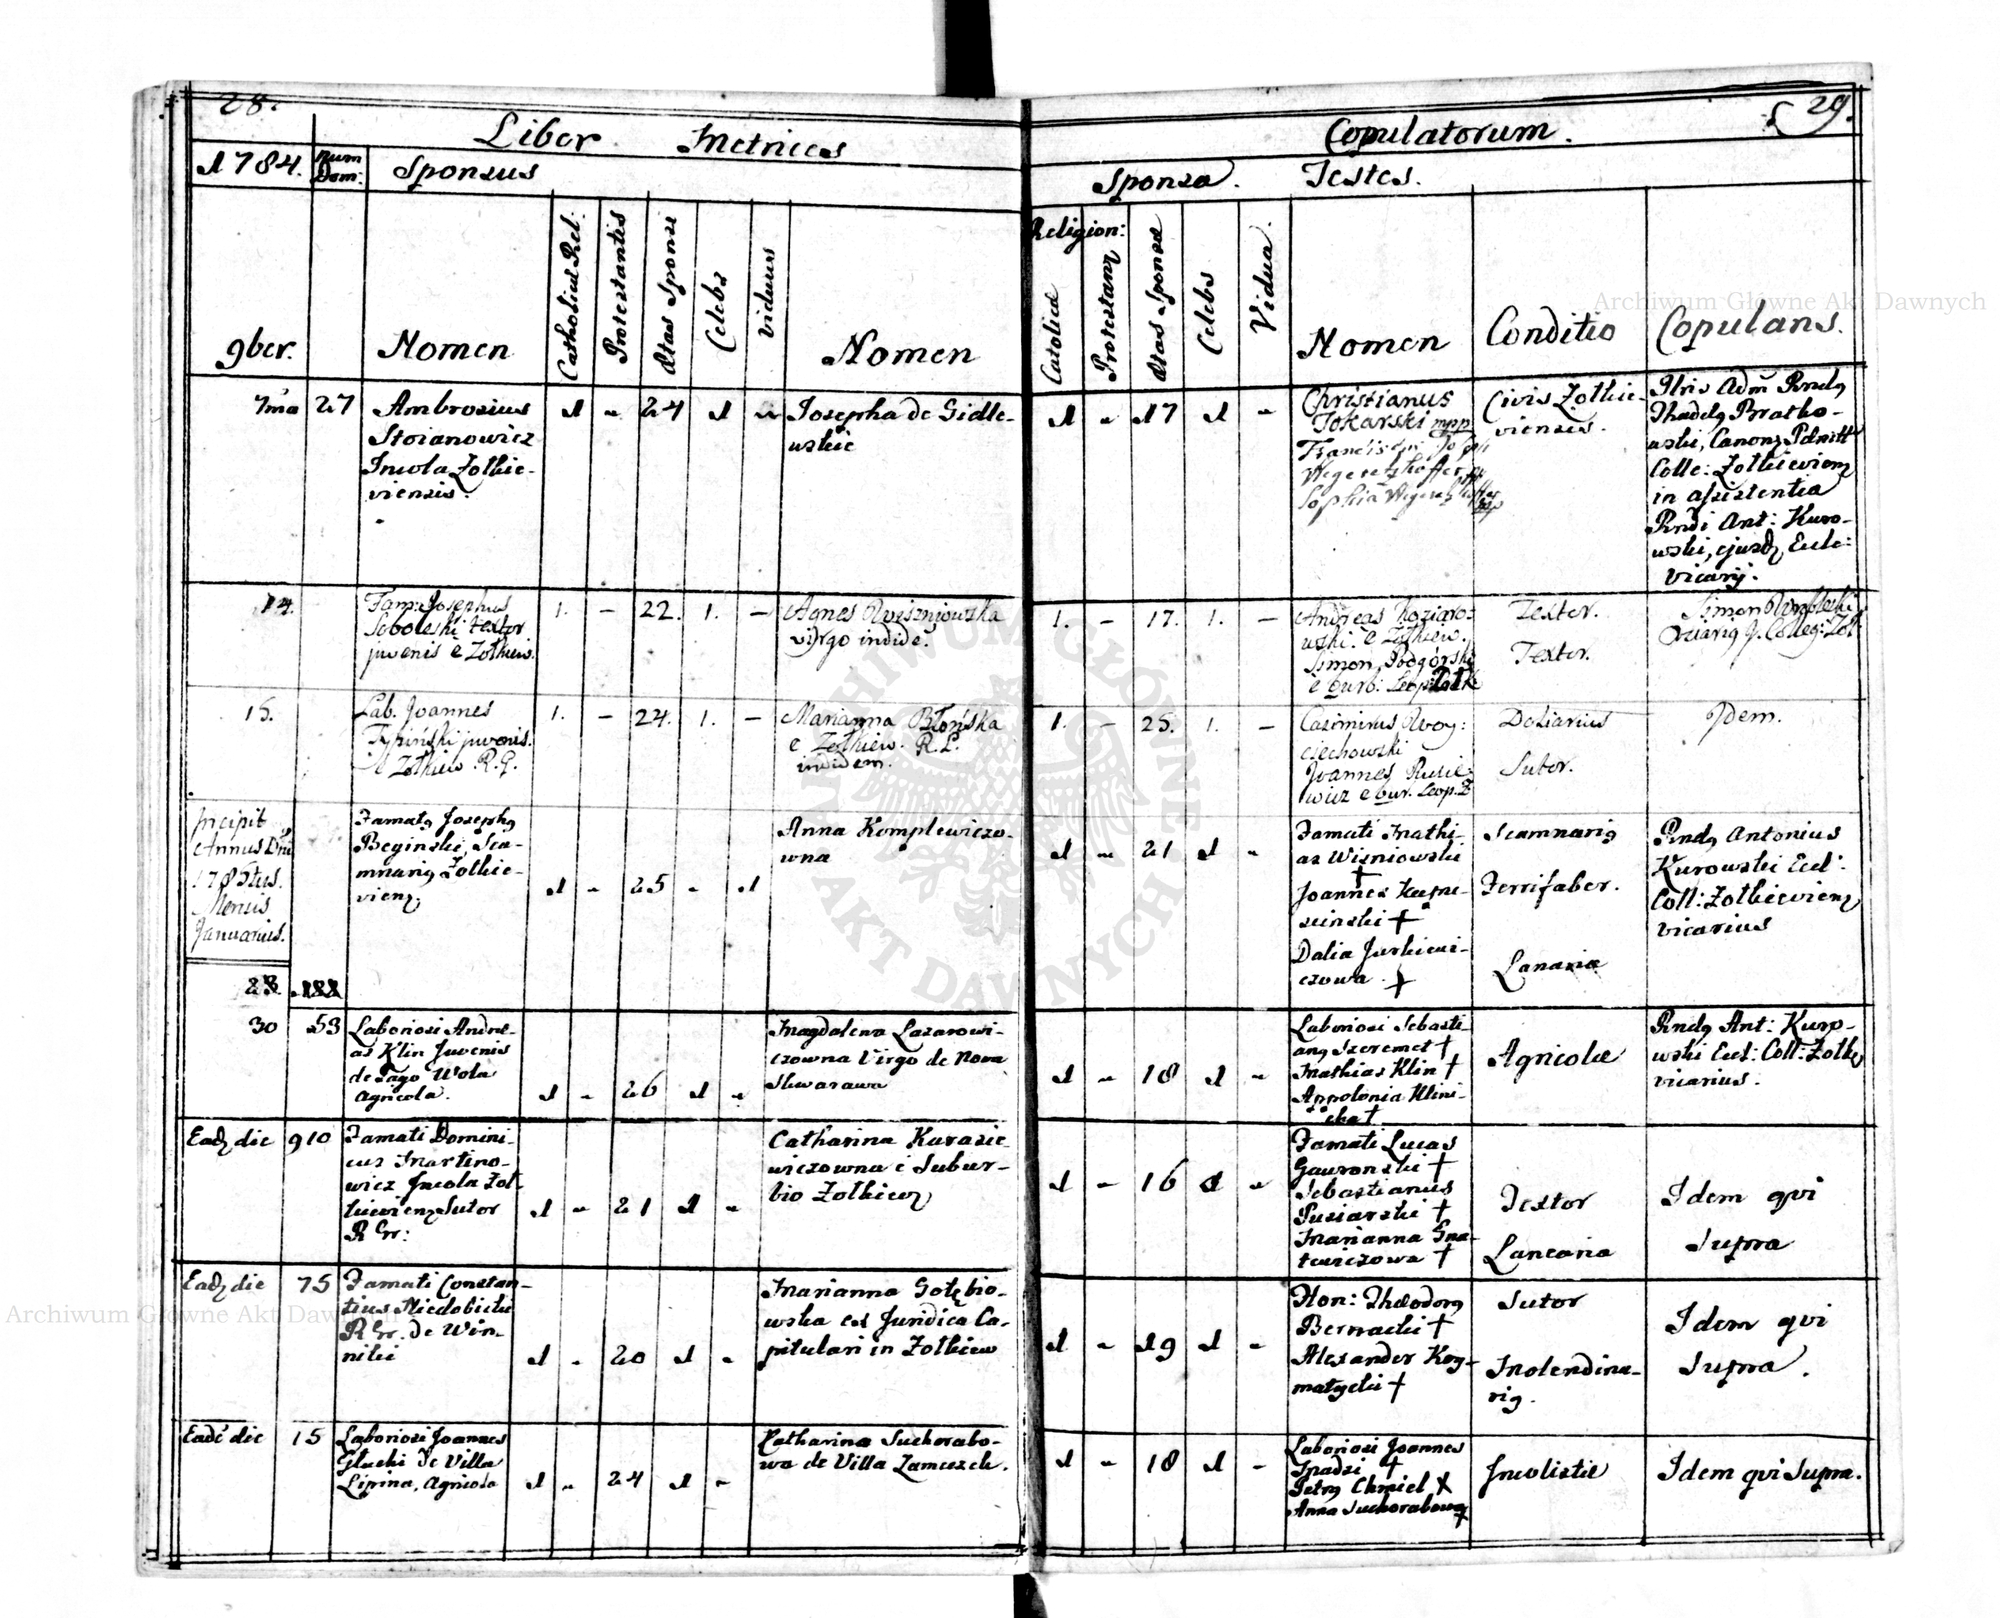 28.
29.
Liber Metrices
Copulatorum.
1784.
Num
Dom:
Sponsus
Sponsa.
Testes.
9ber.
Nomen
Catholicae Rel.
Protestantis
Aetas Sponsi
Celebs
viduus
Nomen
Religion:
Catolicae
Protestan
Aetas Sponsae
Celebs
Vidua.
Nomen
Conditio
Copulans.
7ma 27 Ambrosius
Stoianowicz
Incola Zolkie-
viensis.
1 - 24 1 -
Josepha de Sidle-
wskie
1 - 17 1 -
Christianus
Tokarski mpp
Sophia
Civis Zolkie-
viensis.
Canon
in assistentia
Rndi Ant: Kuro-
wski, ejusd Eccle:
vicarij.
14.
Fam: Josephus
Soboleski textor
juvenis e Zołkiew.
1. - 22. 1. -
Agnes Wiszniowska
virgo ibidē.
1. - 17. 1. -
Andreas Koziaro-
wski. e Zołkiew.
Simon Podgórski
e burb: Leop:
Textor.
Textor.
Simon
15.
Lab. Joannes
juvenis.
e Zołkiew R.G.
1. - 24. 1. -
Marianna Błońska
e Zołkiew. R. L.
ibidem.
1. - 25. 1. -
Casimirus Woy:
ciechowski
Joannes Rusie-
wicz e bur. Leop. Z
Doliarius
Sutor.
Idem.
Incipit
Annus Dni
1785tus.
Mensis
Januarius.
28.
Famatg Josephg
Beginski, Sca-
mnarig Zolkie-
vieng
1 - 25 - 1
Anna Komplewiczo-
wna
1 - 21 1 -
Famati Mathi-
as Wisniowski
+
Joannes
+
Dalia Jurkiewi-
czowa +
Scamnarig
Ferrifaber.
Lanaria
Rndg Antonius
Kurowski Eccl:
Coll: Zolkieviena
vicarius
30 53 Laboriosi Andre-
as Klin Juvenis
de Pago Wola
Agricola.
1 - 26 1 -
Magdalena Lazarowi-
czowna Virgo de Nova
Skwarawa
1 - 18 1 -
Laboriosi Sebasti-
ang Szeremet +
Mathias Klin +
Appolonia Klini-
cha +
Agricolae
Rndg Ant: Kuro-
wski Eccl: Coll: Zolk
vicarius.
Ead die 910 Famati Domini-
cus Martino-
wicz Incola Zol-
kieviena Sutor
R Gr:
1 - 21 1 -
Catharina Kurasie
wiczowna e Subur-
bio Zolkiew
1 - 16 1 -
Famati Lucas
Gawronski +
Sebastianus
Pusiarski +
Marianna Gna-
tewiczowa +
Textor
Lanearia
Idem qvi
Supra
Ead die 75 Famati Constan-
tius
R Gr. de Win-
niki
1 - 20 1 -
Marianna Gołębio-
wska ex Juridica Ca-
pitulari in Zolkiew
1 - 19 1 -
Hon: Theodorg
Bernacki +
Alexander Kos-
matycki +
Sutor
Molendina-
rig.
Idem qvi
Supra.
Eadē die 15 Laboriosi Joannes
Głucki de Villa
Lipina, Agricola
1 - 24 1 -
Catharina Suchorabo-
wa de Villa Zameczek.
1 - 18 1 -
Laboriosi Joannes
Madzi +
Petrg Chmiel +
Anna Suchorabowa
+
Incolistae
Idem qvi Supra.
Archiwum Główne Akt Dawnych
Archiwum Główne Akt Dawnych
ARCHIWUM GŁÓWNE AKT DAWNYCH